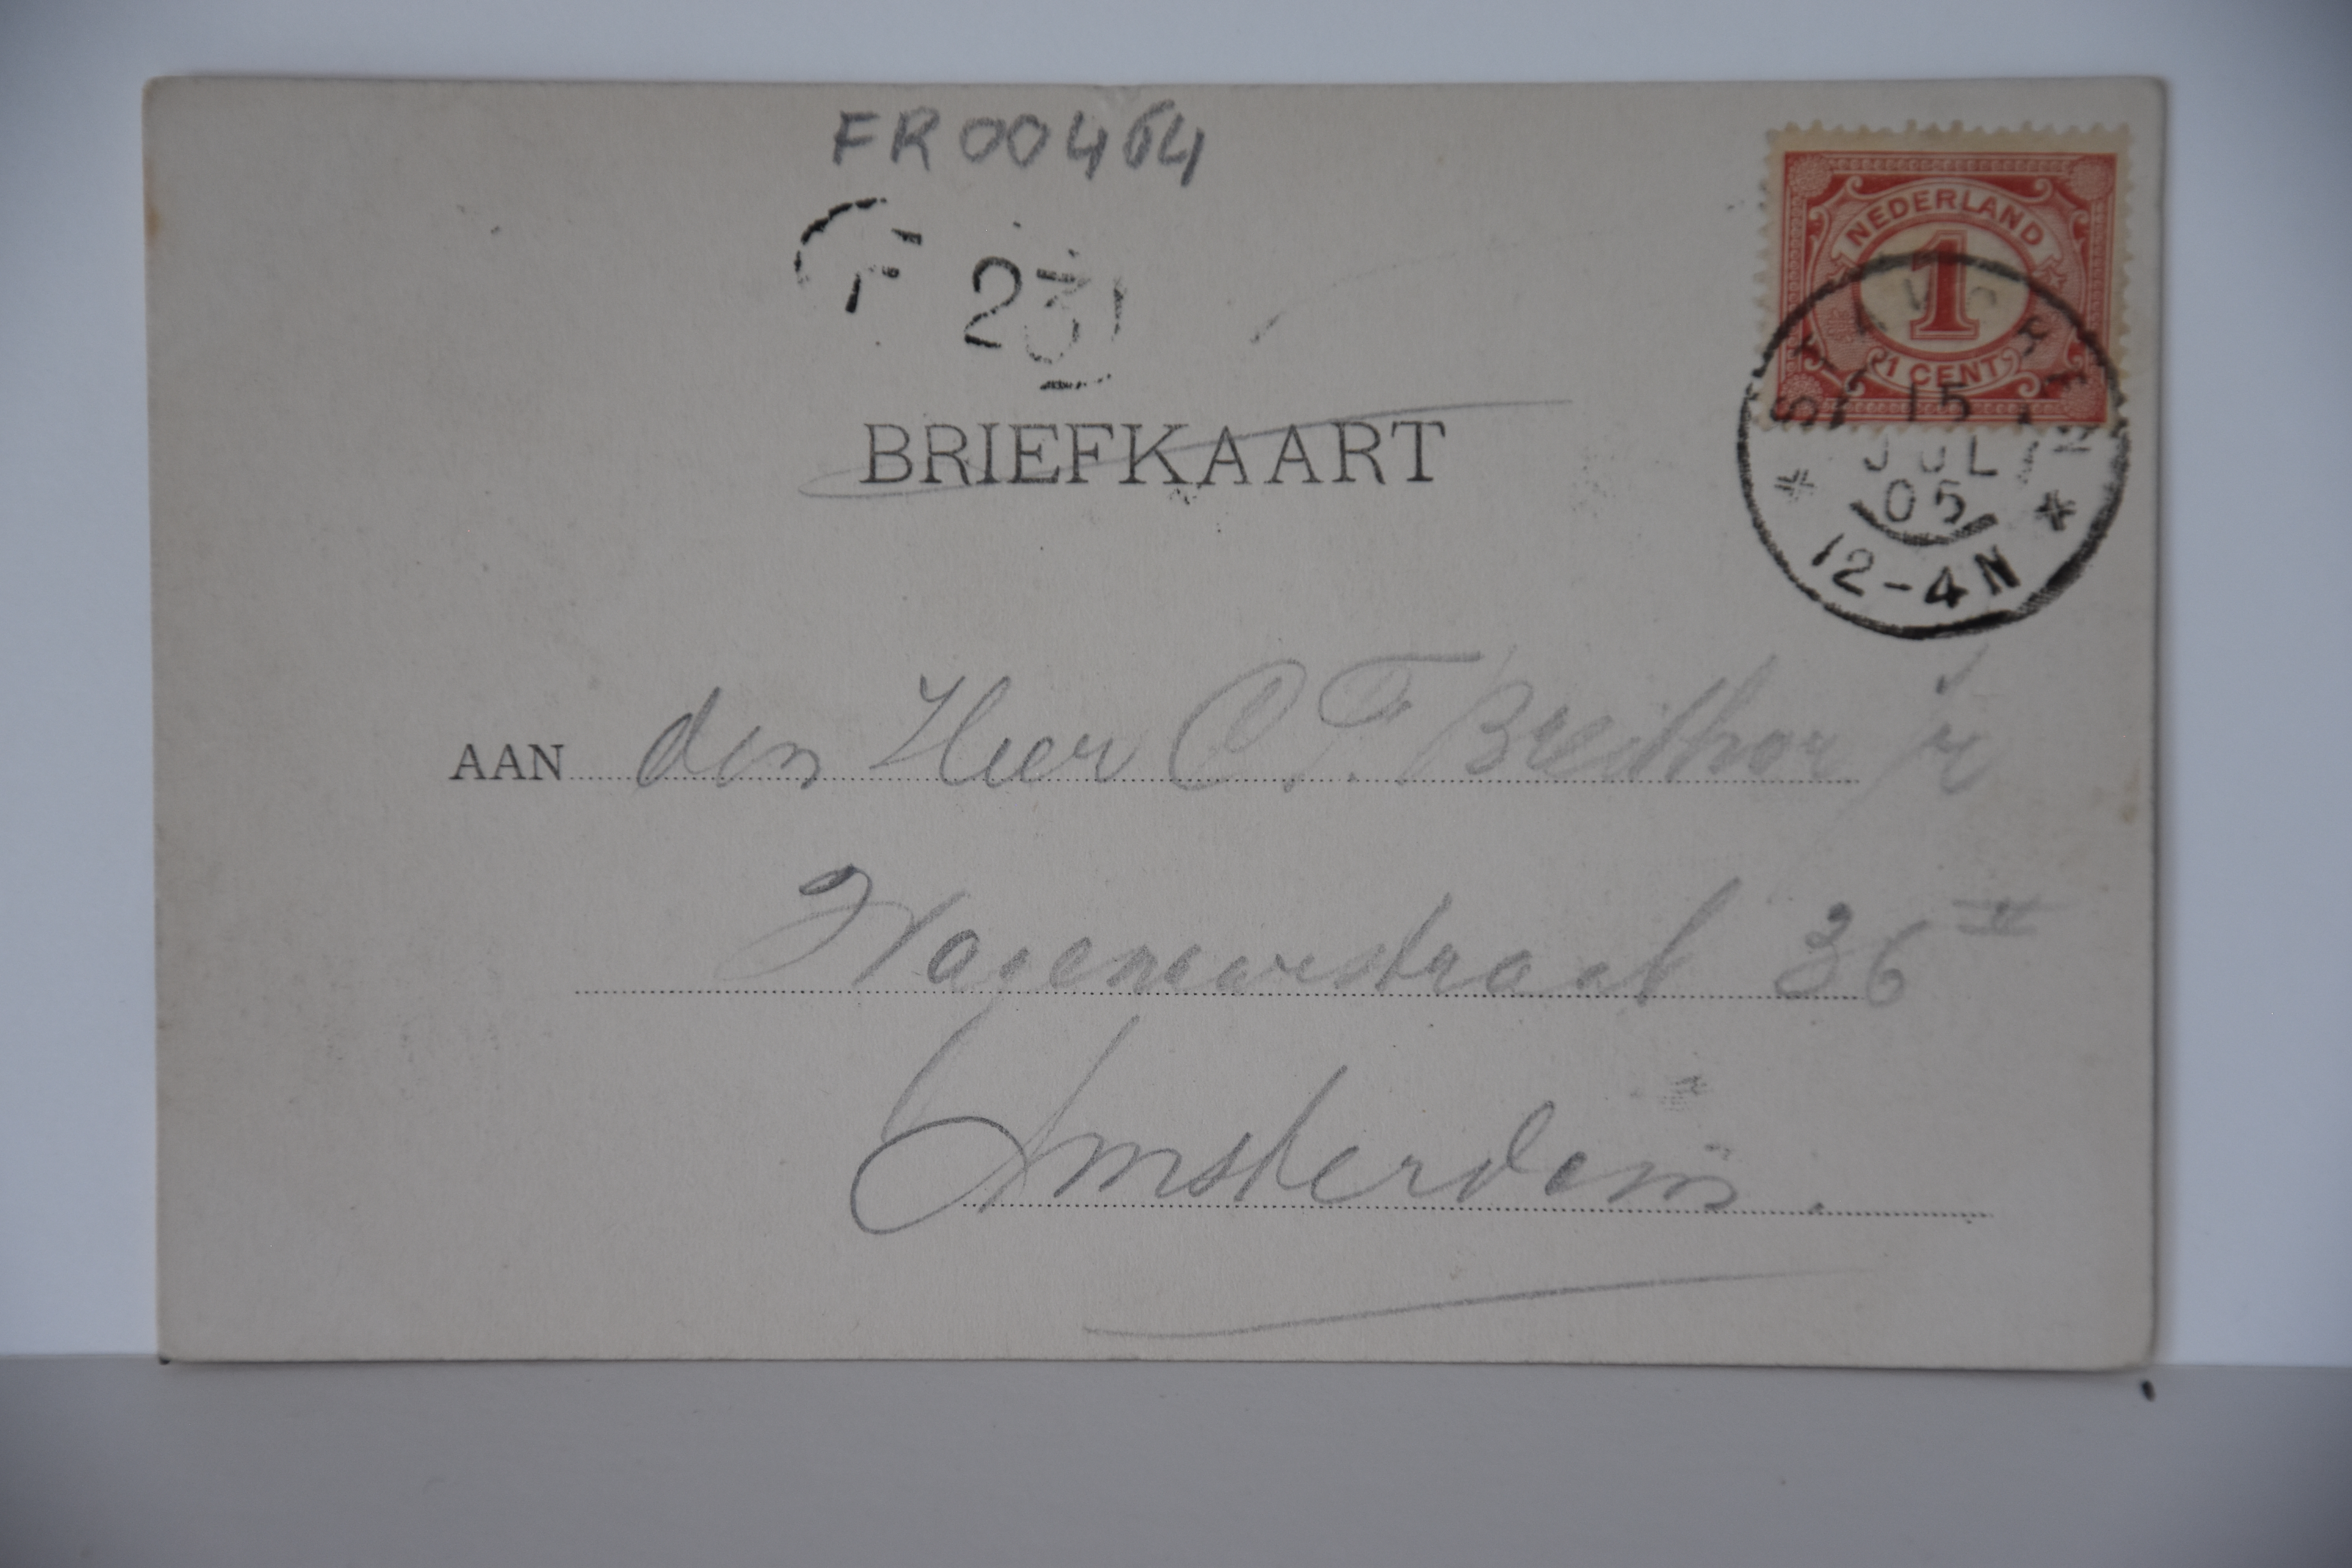 FR00464
F 23
NEDERLAND
1
1 CENT
STAVOREN
15
JUL
05
12-4N
BRIEFKAART
AAN den Heer C. F. jr
Wagenaarstraat 36 II
Amsterdam.